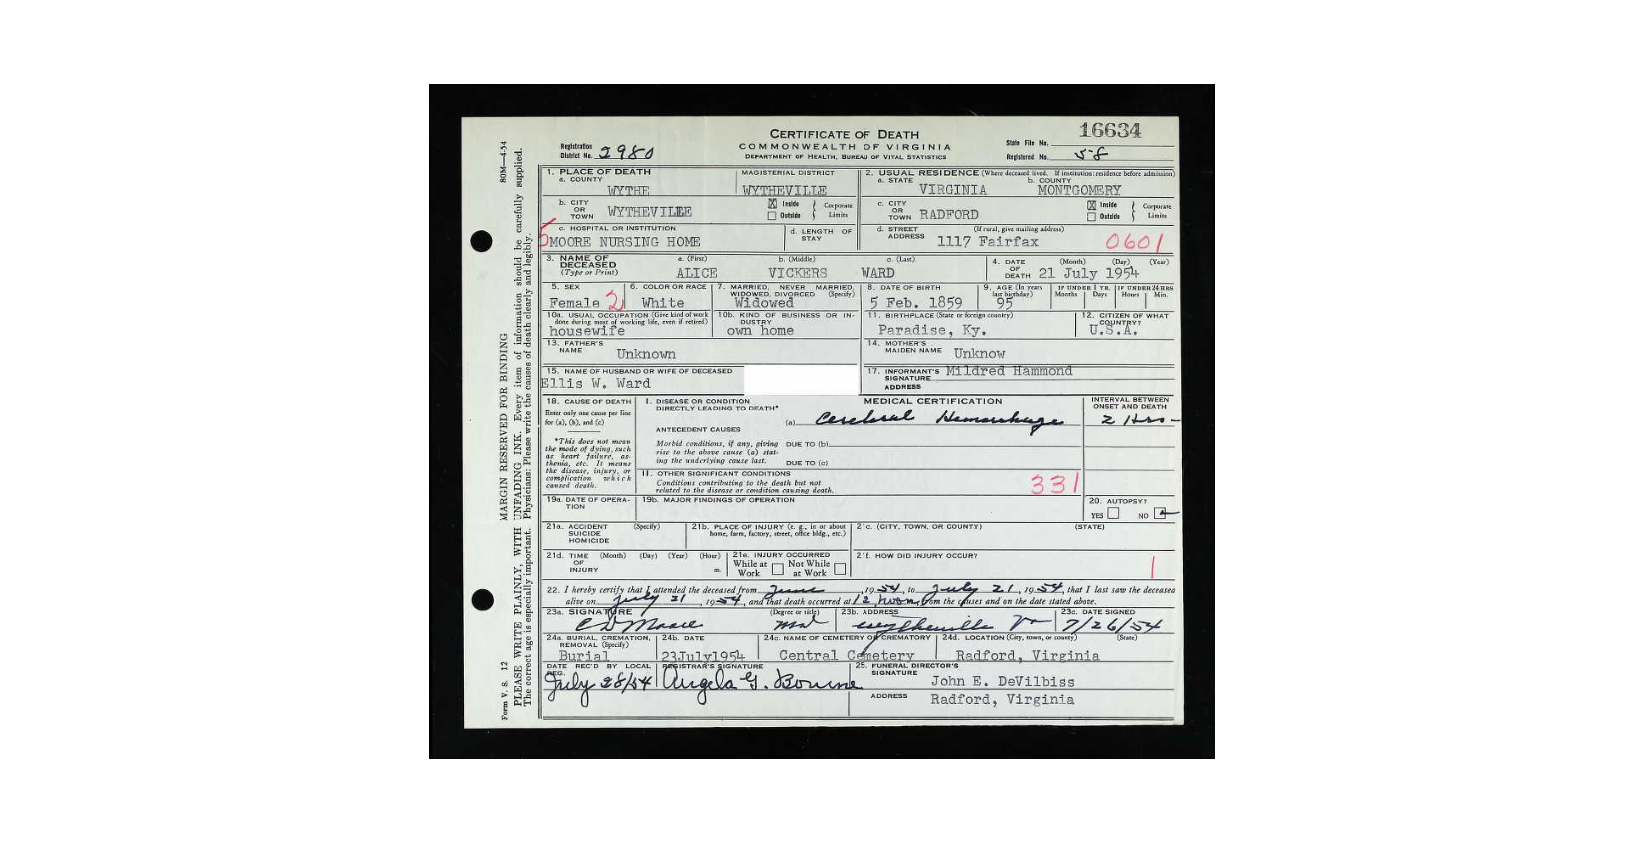 16634
CERTIFICATE OF DEATH
COMMONWEALTH OF VIRGINIA
DEPARTMENT OF HEALTH, BUREAU OF VITAL STATISTICS
Registration District No. 2980
State File No.
Registered No. 58
80M—4-54
MARGIN RESERVED FOR BINDING
PLEASE WRITE PLAINLY, WITH UNFADING INK. Every item of information should be carefully supplied.
The correct age is especially important. Physicians: Please write the causes of death clearly and legibly.
Form V. S. 12
1. PLACE OF DEATH
a. COUNTY WYTHE
MAGISTERIAL DISTRICT WYTHEVILLE
2. USUAL RESIDENCE (Where deceased lived. If institution: residence before admission)
a. STATE VIRGINIA
b. COUNTY MONTGOMERY
b. CITY OR TOWN WYTHEVILLE
X Inside Outside Corporate Limits
c. CITY OR TOWN RADFORD
X Inside Outside Corporate Limits
5
c. HOSPITAL OR INSTITUTION MOORE NURSING HOME
d. LENGTH OF STAY
d. STREET ADDRESS (If rural, give mailing address) 1117 Fairfax
0601
3. NAME OF DECEASED (Type or Print)
a. (First) ALICE
b. (Middle) VICKERS
c. (Last) WARD
4. DATE OF DEATH (Month) (Day) (Year) 21 July 1954
5. SEX Female 2
6. COLOR OR RACE White
7. MARRIED, NEVER MARRIED, WIDOWED, DIVORCED (Specify) Widowed
8. DATE OF BIRTH 5 Feb. 1859
9. AGE (In years last birthday) 95
IF UNDER 1 YR. Months Days
IF UNDER 24 HRS Hours Min.
10a. USUAL OCCUPATION (Give kind of work done during most of working life, even if retired) housewife
10b. KIND OF BUSINESS OR INDUSTRY own home
11. BIRTHPLACE (State or foreign country) Paradise, Ky.
12. CITIZEN OF WHAT COUNTRY? U.S.A.
13. FATHER'S NAME Unknown
14. MOTHER'S MAIDEN NAME Unknow
15. NAME OF HUSBAND OR WIFE OF DECEASED Ellis W. Ward
17. INFORMANT'S SIGNATURE Mildred Hammond
ADDRESS
18. CAUSE OF DEATH
Enter only one cause per line for (a), (b), and (c)
*This does not mean the mode of dying, such as heart failure, asthenia, etc. It means the disease, injury, or complication which caused death.
MEDICAL CERTIFICATION
INTERVAL BETWEEN ONSET AND DEATH
I. DISEASE OR CONDITION DIRECTLY LEADING TO DEATH*
(a) Cerebral Hemorrhage 2 Hrs-
ANTECEDENT CAUSES
Morbid conditions, if any, giving rise to the above cause (a) stating the underlying cause last.
DUE TO (b)
DUE TO (c)
II. OTHER SIGNIFICANT CONDITIONS
Conditions contributing to the death but not related to the disease or condition causing death.
331
19a. DATE OF OPERATION
19b. MAJOR FINDINGS OF OPERATION
20. AUTOPSY?
YES NO
21a. ACCIDENT SUICIDE HOMICIDE (Specify)
21b. PLACE OF INJURY (e. g., in or about home, farm, factory, street, office bldg., etc.)
2'c. (CITY, TOWN, OR COUNTY) (STATE)
21d. TIME OF INJURY (Month) (Day) (Year) (Hour) m.
21e. INJURY OCCURRED
While at Work Not While at Work
2'f. HOW DID INJURY OCCUR?
1
22. I hereby certify that I attended the deceased from June, 1954, to July 21, 1954, that I last saw the deceased
alive on July 21, 1954, and that death occurred at 12 noon, from the causes and on the date stated above.
23a. SIGNATURE (Degree or title) C D Moore MD
23b. ADDRESS Wytheville Va
23c. DATE SIGNED 7/26/54
24a. BURIAL, CREMATION, REMOVAL (Specify) Burial
24b. DATE 23July1954
24c. NAME OF CEMETERY OR CREMATORY Central Cemetery
24d. LOCATION (City, town, or county) (State) Radford, Virginia
DATE REC'D BY LOCAL REG. July 28/54
REGISTRAR'S SIGNATURE Angela G. Bourne
25. FUNERAL DIRECTOR'S SIGNATURE John E. DeVilbiss
ADDRESS Radford, Virginia